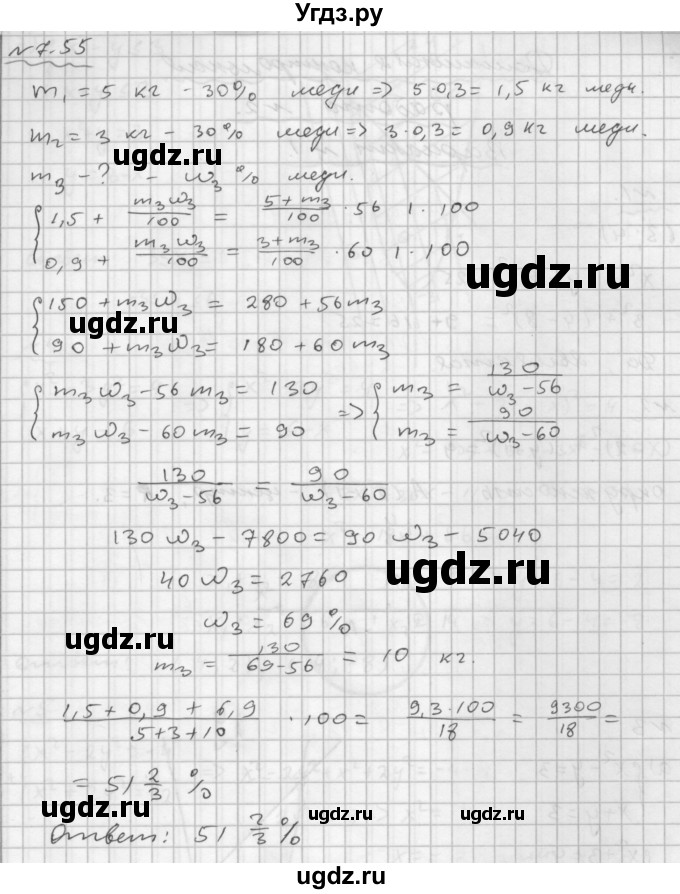 Угдз.ру
N 7.55
m₁ = 5 кг - 30% меди => 5·0,3 = 1,5 кг меди.
m₂ = 3 кг - 30% меди => 3·0,3 = 0,9 кг меди.
ugdz.ru
m₃ - ? - ω₃ % меди.
{ 1,5 + m₃ω₃/100 = 5+m₃/100 · 56 | · 100
0,9 + m₃ω₃/100 = 3+m₃/100 · 60 | · 100
ugdz.ru
{ 150 + m₃ω₃ = 280 + 56m₃
ugdz.ru
90 + m₃ω₃ = 180 + 60m₃
{ m₃ω₃ - 56m₃ = 130 => { m₃ = 130/ω₃-56
m₃ω₃ - 60m₃ = 90 m₃ = 90/ω₃-60
ugdz.ru
130/ω₃-56 = 90/ω₃-60
130ω₃ - 7800 = 90ω₃ - 5040
ugdz.ru
40ω₃ = 2760
ω₃ = 69%
ugdz.ru
m₃ = 130/69-56 = 10 кг.
1,5+0,9+6,9/5+3+10 · 100 = 9,3·100/18 = 9300/18 =
= 51 2/3 %
ugdz.ru ugdz.ru ugdz.ru
Ответ: 51 2/3 %
Угдз.ру